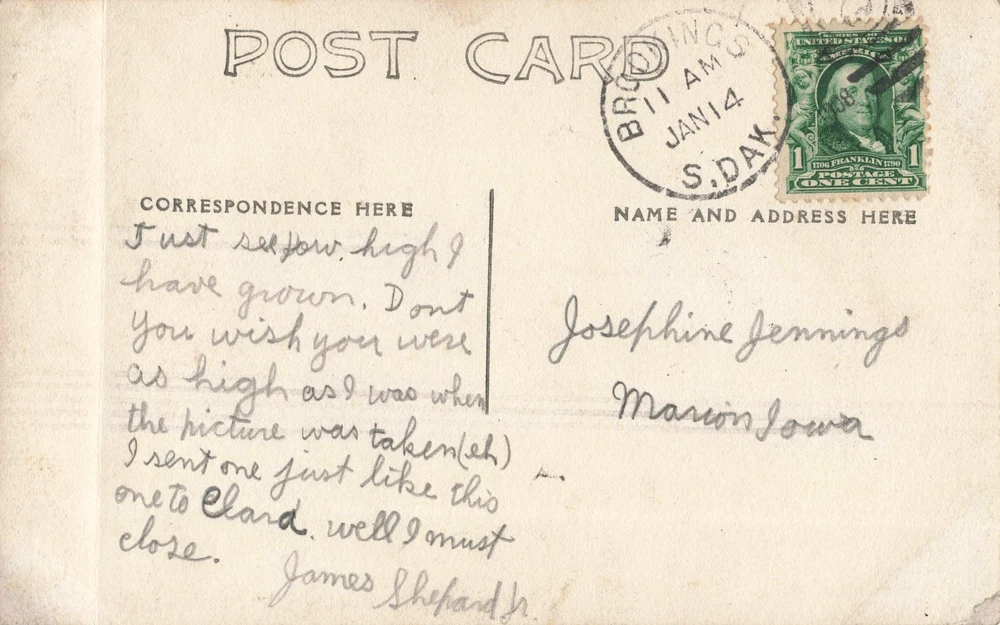 POST CARD
BROOKINGS
11 AM
JAN 14
S. DAK.
1908
SERIES 1902
UNITED STATES OF
AMERICA
1 1
1706 FRANKLIN 1790
POSTAGE
ONE CENT
CORRESPONDENCE HERE
NAME AND ADDRESS HERE
Just see how high I
have grown. Dont
you wish you were
as high as I was when
the picture was taken (eh)
I sent one just like this
one to Clara. well I must
close.
James Shepard Jr.
Josephine Jennings
Marion Iowa